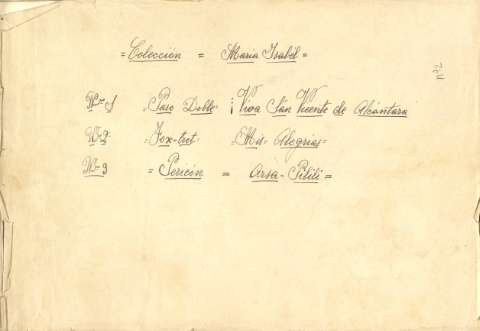 = Colección = María Isabel =
nº2
Nº- 1 Paso Doble ¡Viva San Vicente de Alcántara
Nº- 2 Fox-trot Mis- Alegrias =
Nº- 3 = Pericón = Arsa- Pilili =